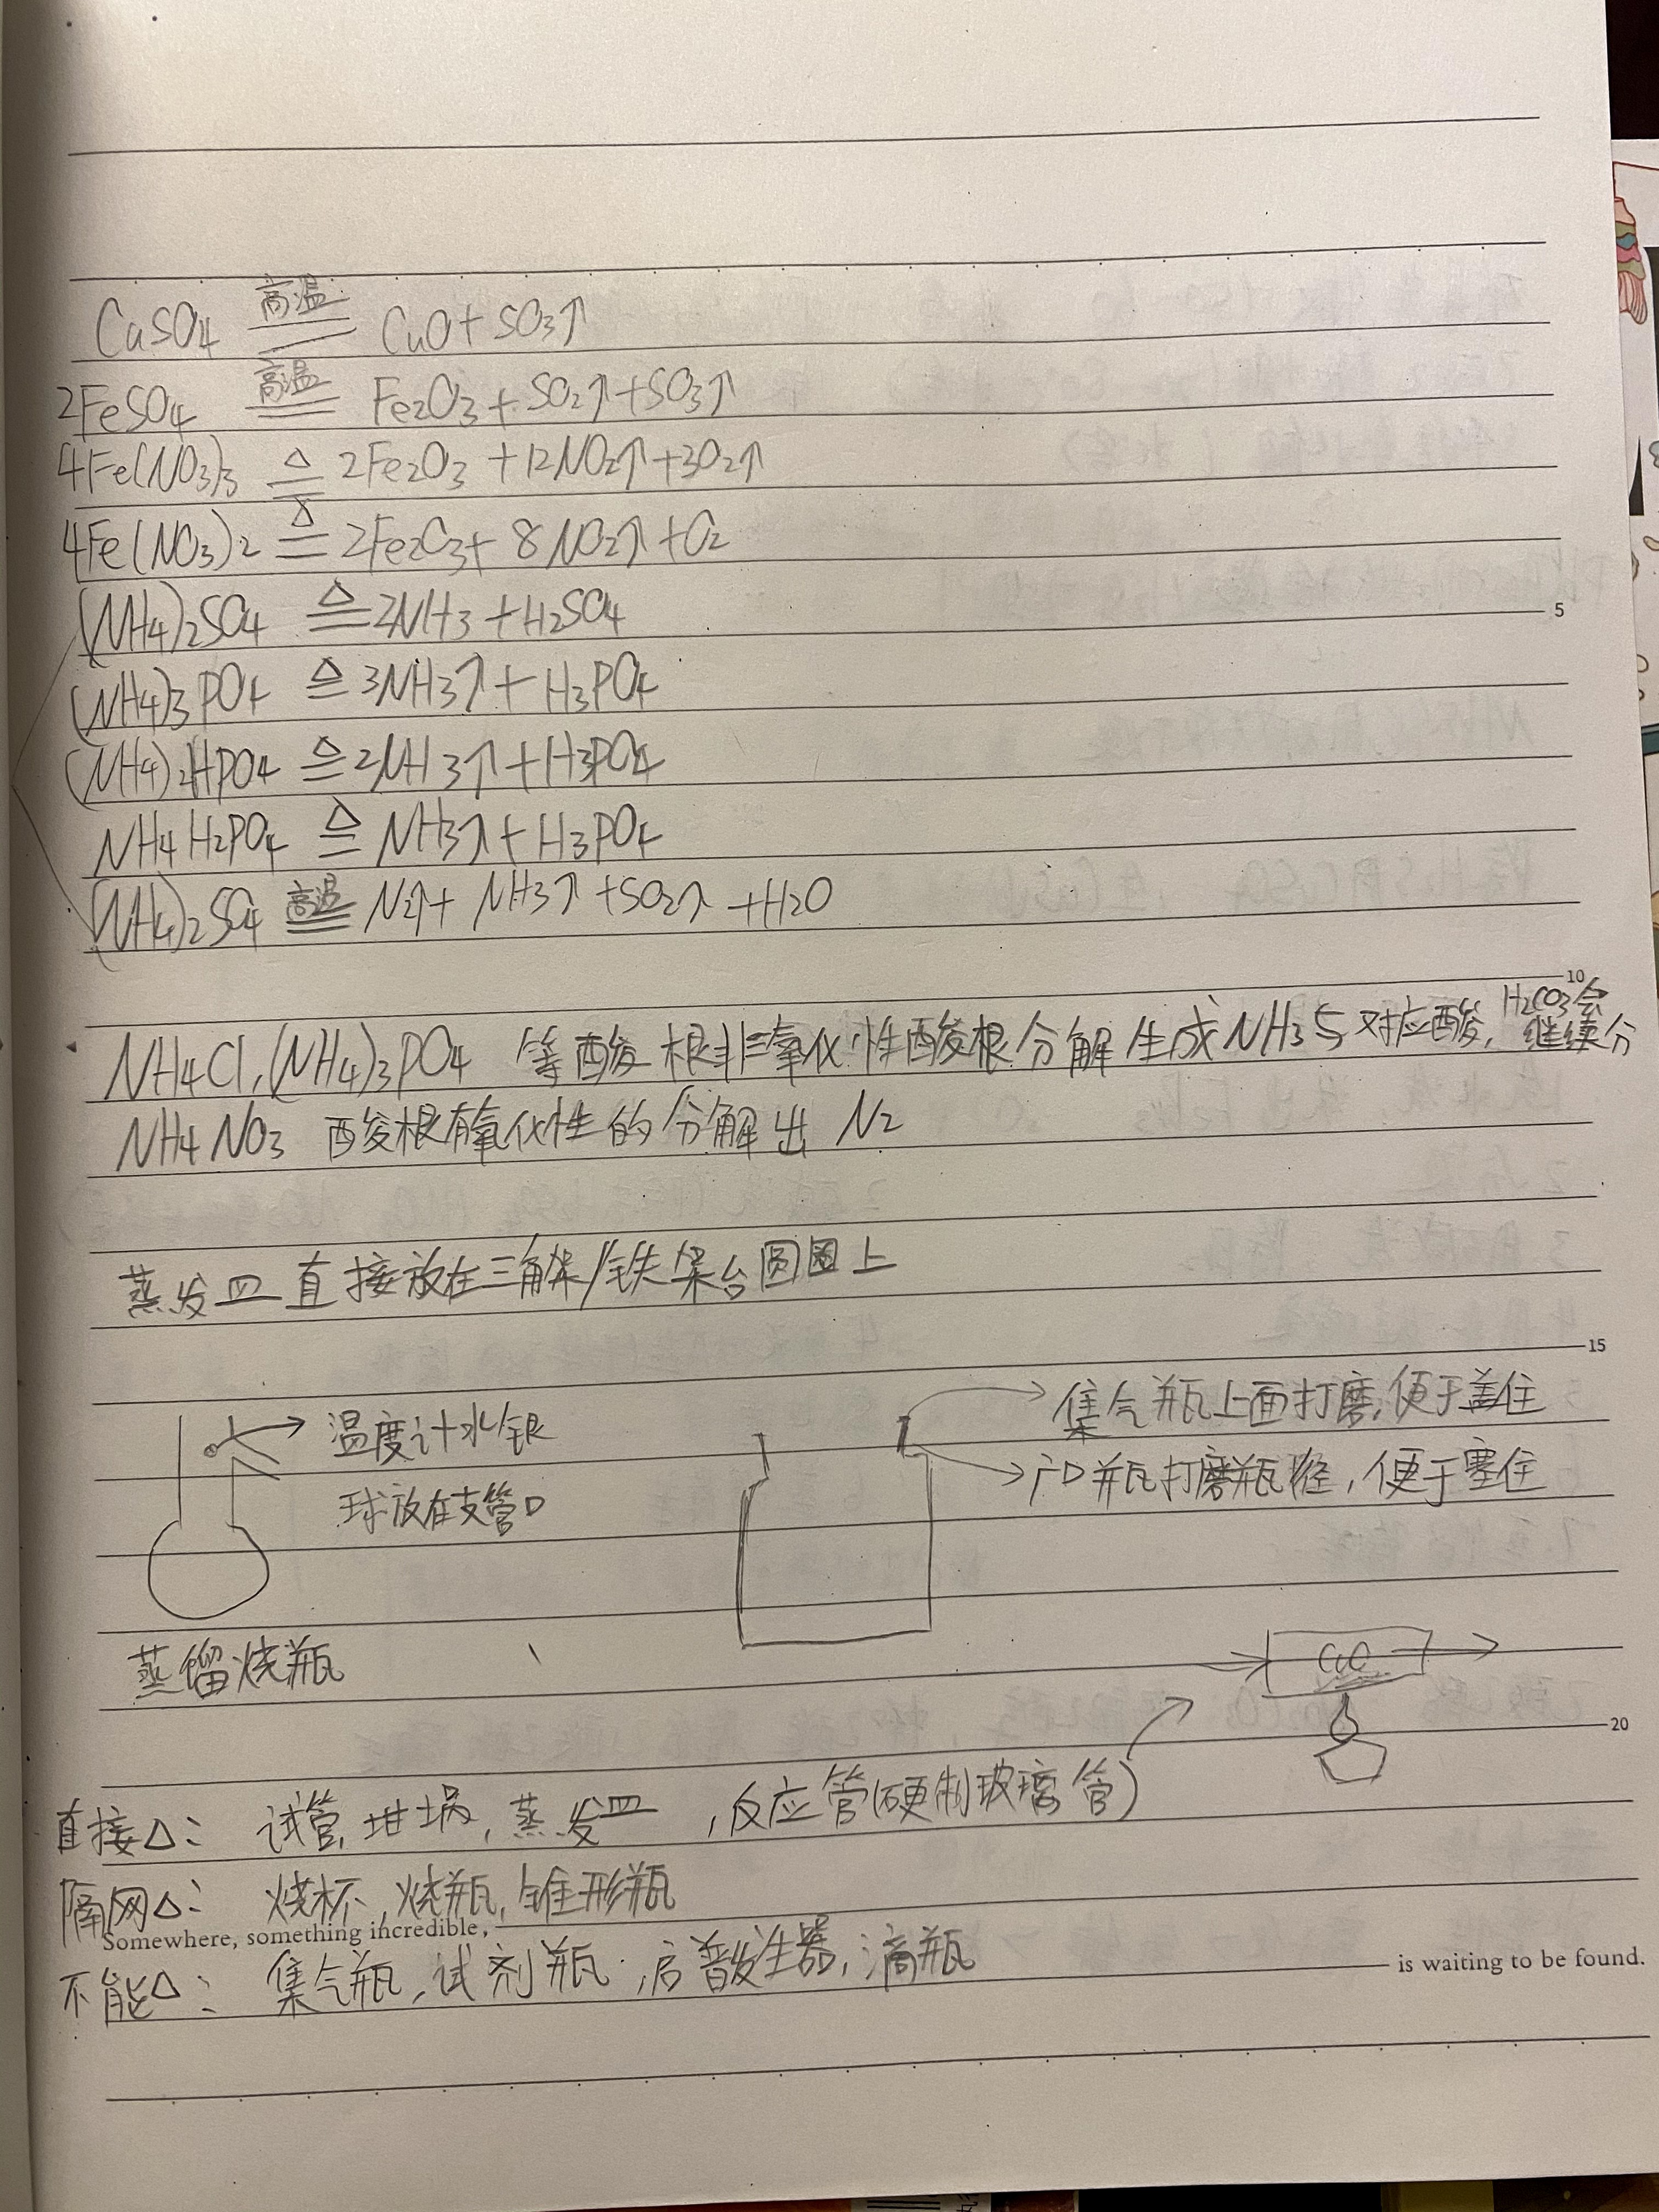 CuSO4 高温 CuO+SO3↑
2FeSO4 高温 Fe2O3+SO2↑+SO3↑
4Fe(NO3)3 △ 2Fe2O3+12NO2↑+3O2↑
4Fe(NO3)2 △ 2Fe2O3+8NO2↑+O2
(NH4)2SO4 △ 2NH3+H2SO4
5
(NH4)3PO4 △ 3NH3↑+H3PO4
(NH4)2HPO4 △ 2NH3↑+H3PO4
NH4H2PO4 △ NH3↑+H3PO4
(NH4)2SO4 高温 N2↑+NH3↑+SO2↑+H2O
10
NH4Cl,(NH4)3PO4 等酸根非氧化性酸根分解生成NH3与对应酸, H2CO3会继续分
NH4NO3 酸根有氧化性的分解出 N2
蒸发皿直接放在三角架/铁架台圆圈上
15
集气瓶上面打磨,便于盖住
温度计水银
广口瓶打磨瓶径,便于塞住
球放在支管口
蒸馏烧瓶
CuO
20
直接△: 试管,坩埚,蒸发皿,反应管(硬制玻璃管)
隔网△: 烧杯,烧瓶,锥形瓶
Somewhere, something incredible,
is waiting to be found.
不能△: 集气瓶,试剂瓶,启普发生器,滴瓶